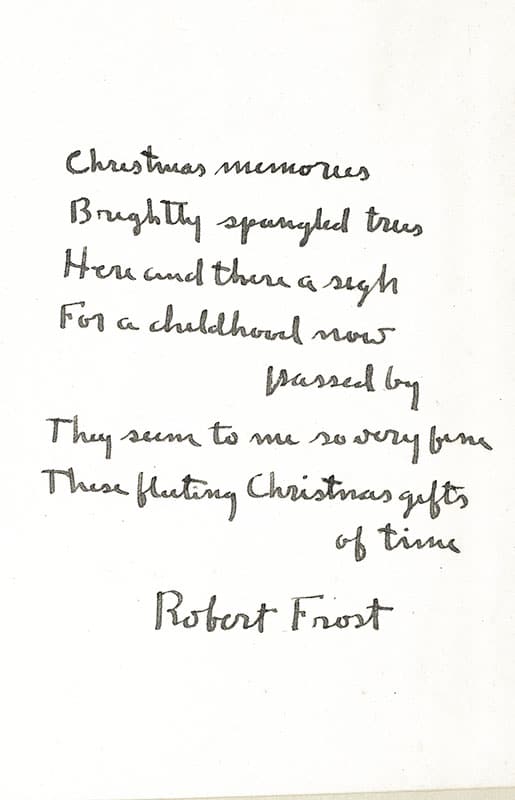 Christmas memories
Brightly spangled trees
Here and there a sigh
For a childhood now
passed by
They seem to me so very fine
These fleeting Christmas gifts
of time
Robert Frost